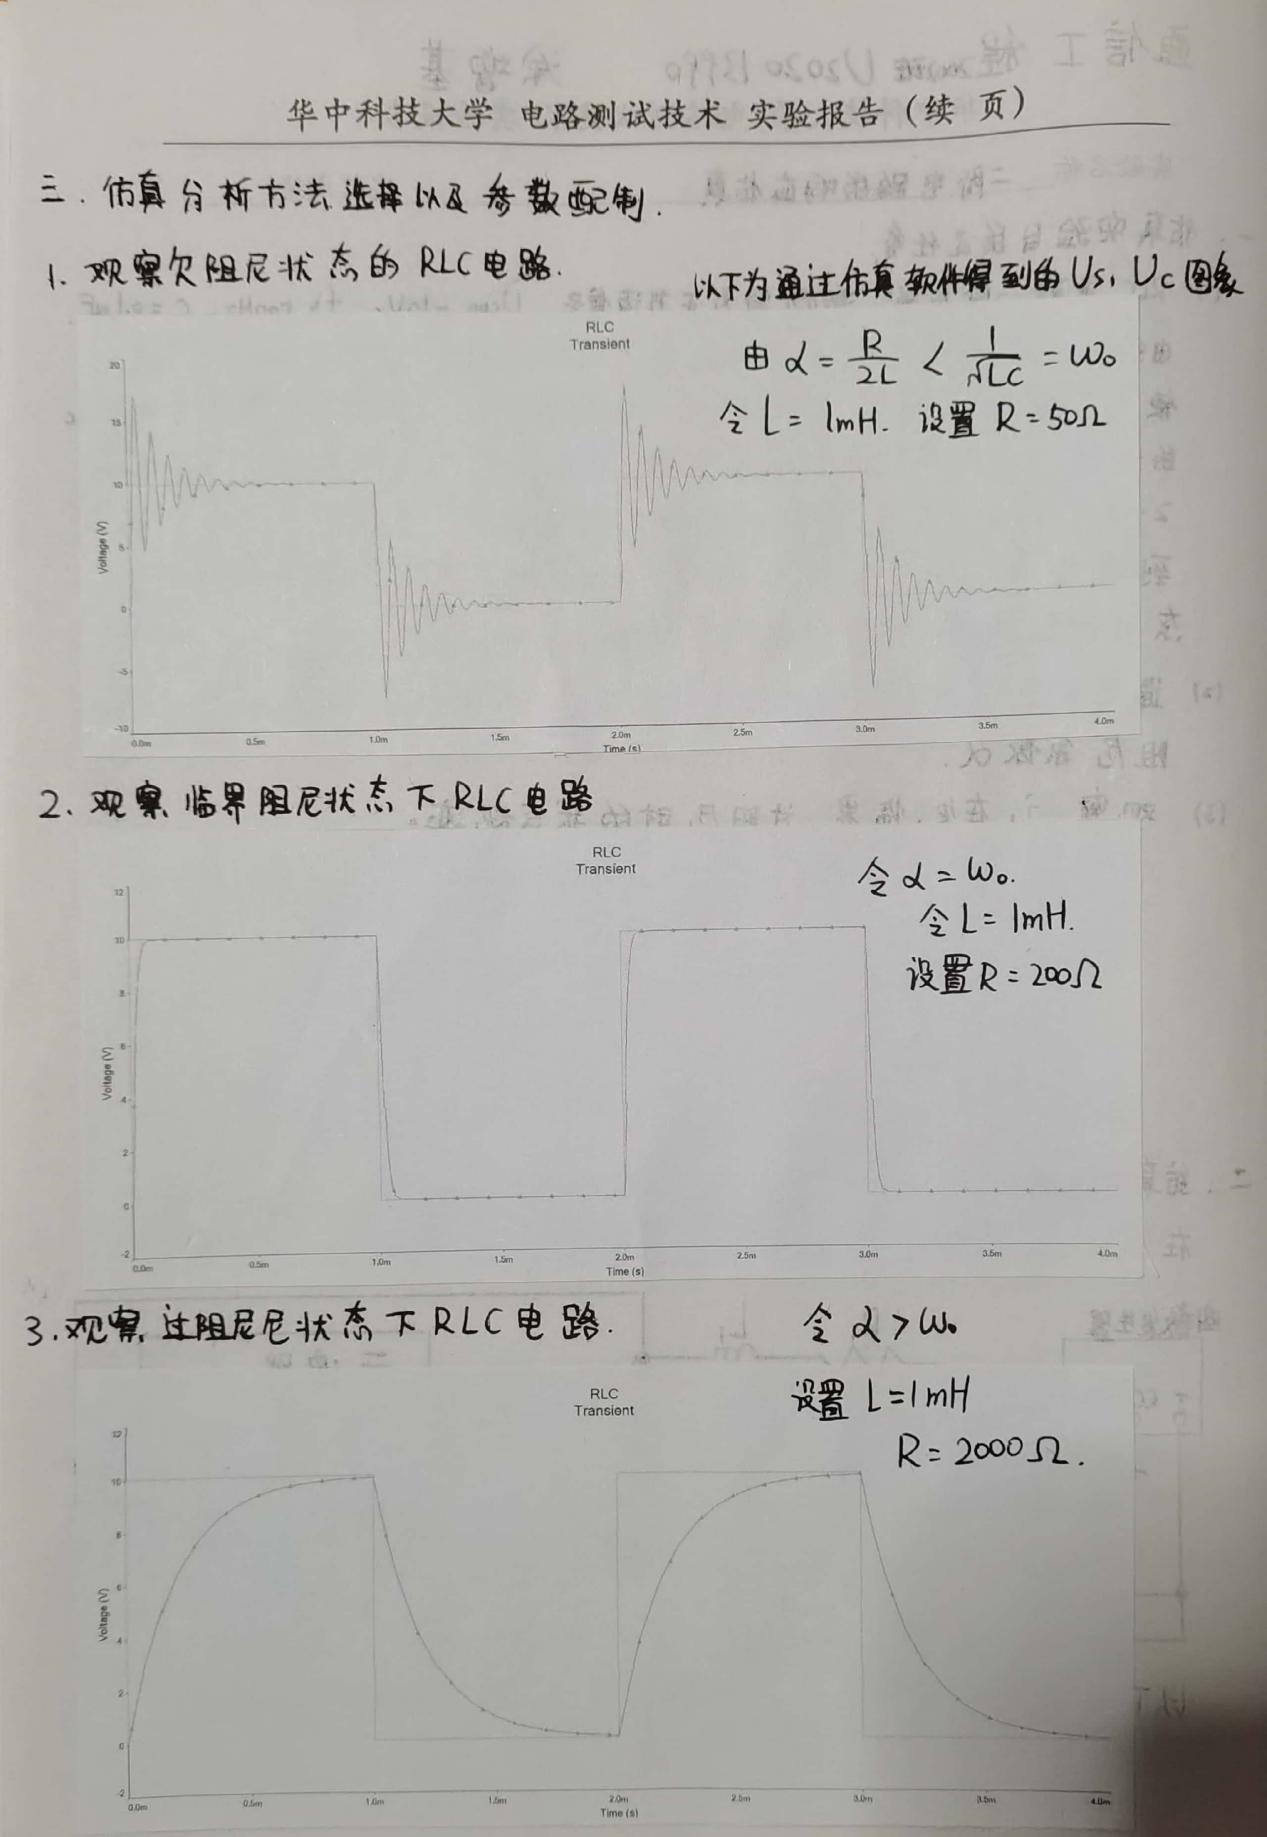 华中科技大学 电路测试技术 实验报告(续 页)
三.仿真分析方法选择以及参数配制.
1.观察欠阻尼状态的RLC电路.
以下为通过仿真软件得到的Us,Uc图象
RLC
Transient
由 α = R/2L < 1/√LC = ω₀
令 L = 1mH. 设置 R = 50Ω
Voltage (V)
20
15
10
5
0
-5
-10
0.0m 0.5m 1.0m 1.5m 2.0m 2.5m 3.0m 3.5m 4.0m
Time (s)
2.观察临界阻尼状态下RLC电路
RLC
Transient
令 α = ω₀.
令 L = 1mH.
设置 R = 200Ω
Voltage (V)
12
10
8
6
4
2
0
-2
0.0m 0.5m 1.0m 1.5m 2.0m 2.5m 3.0m 3.5m 4.0m
Time (s)
3.观察过阻尼尼状态下RLC电路.
令 α > ω₀
RLC
Transient
设置 L = 1mH
R = 2000Ω.
Voltage (V)
12
10
8
6
4
2
0
-2
0.0m 0.5m 1.0m 1.5m 2.0m 2.5m 3.0m 3.5m 4.0m
Time (s)